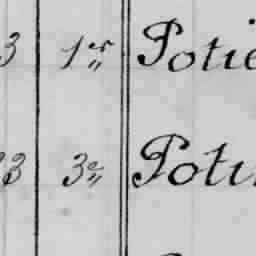 3 1er Potie
3 3e Poti